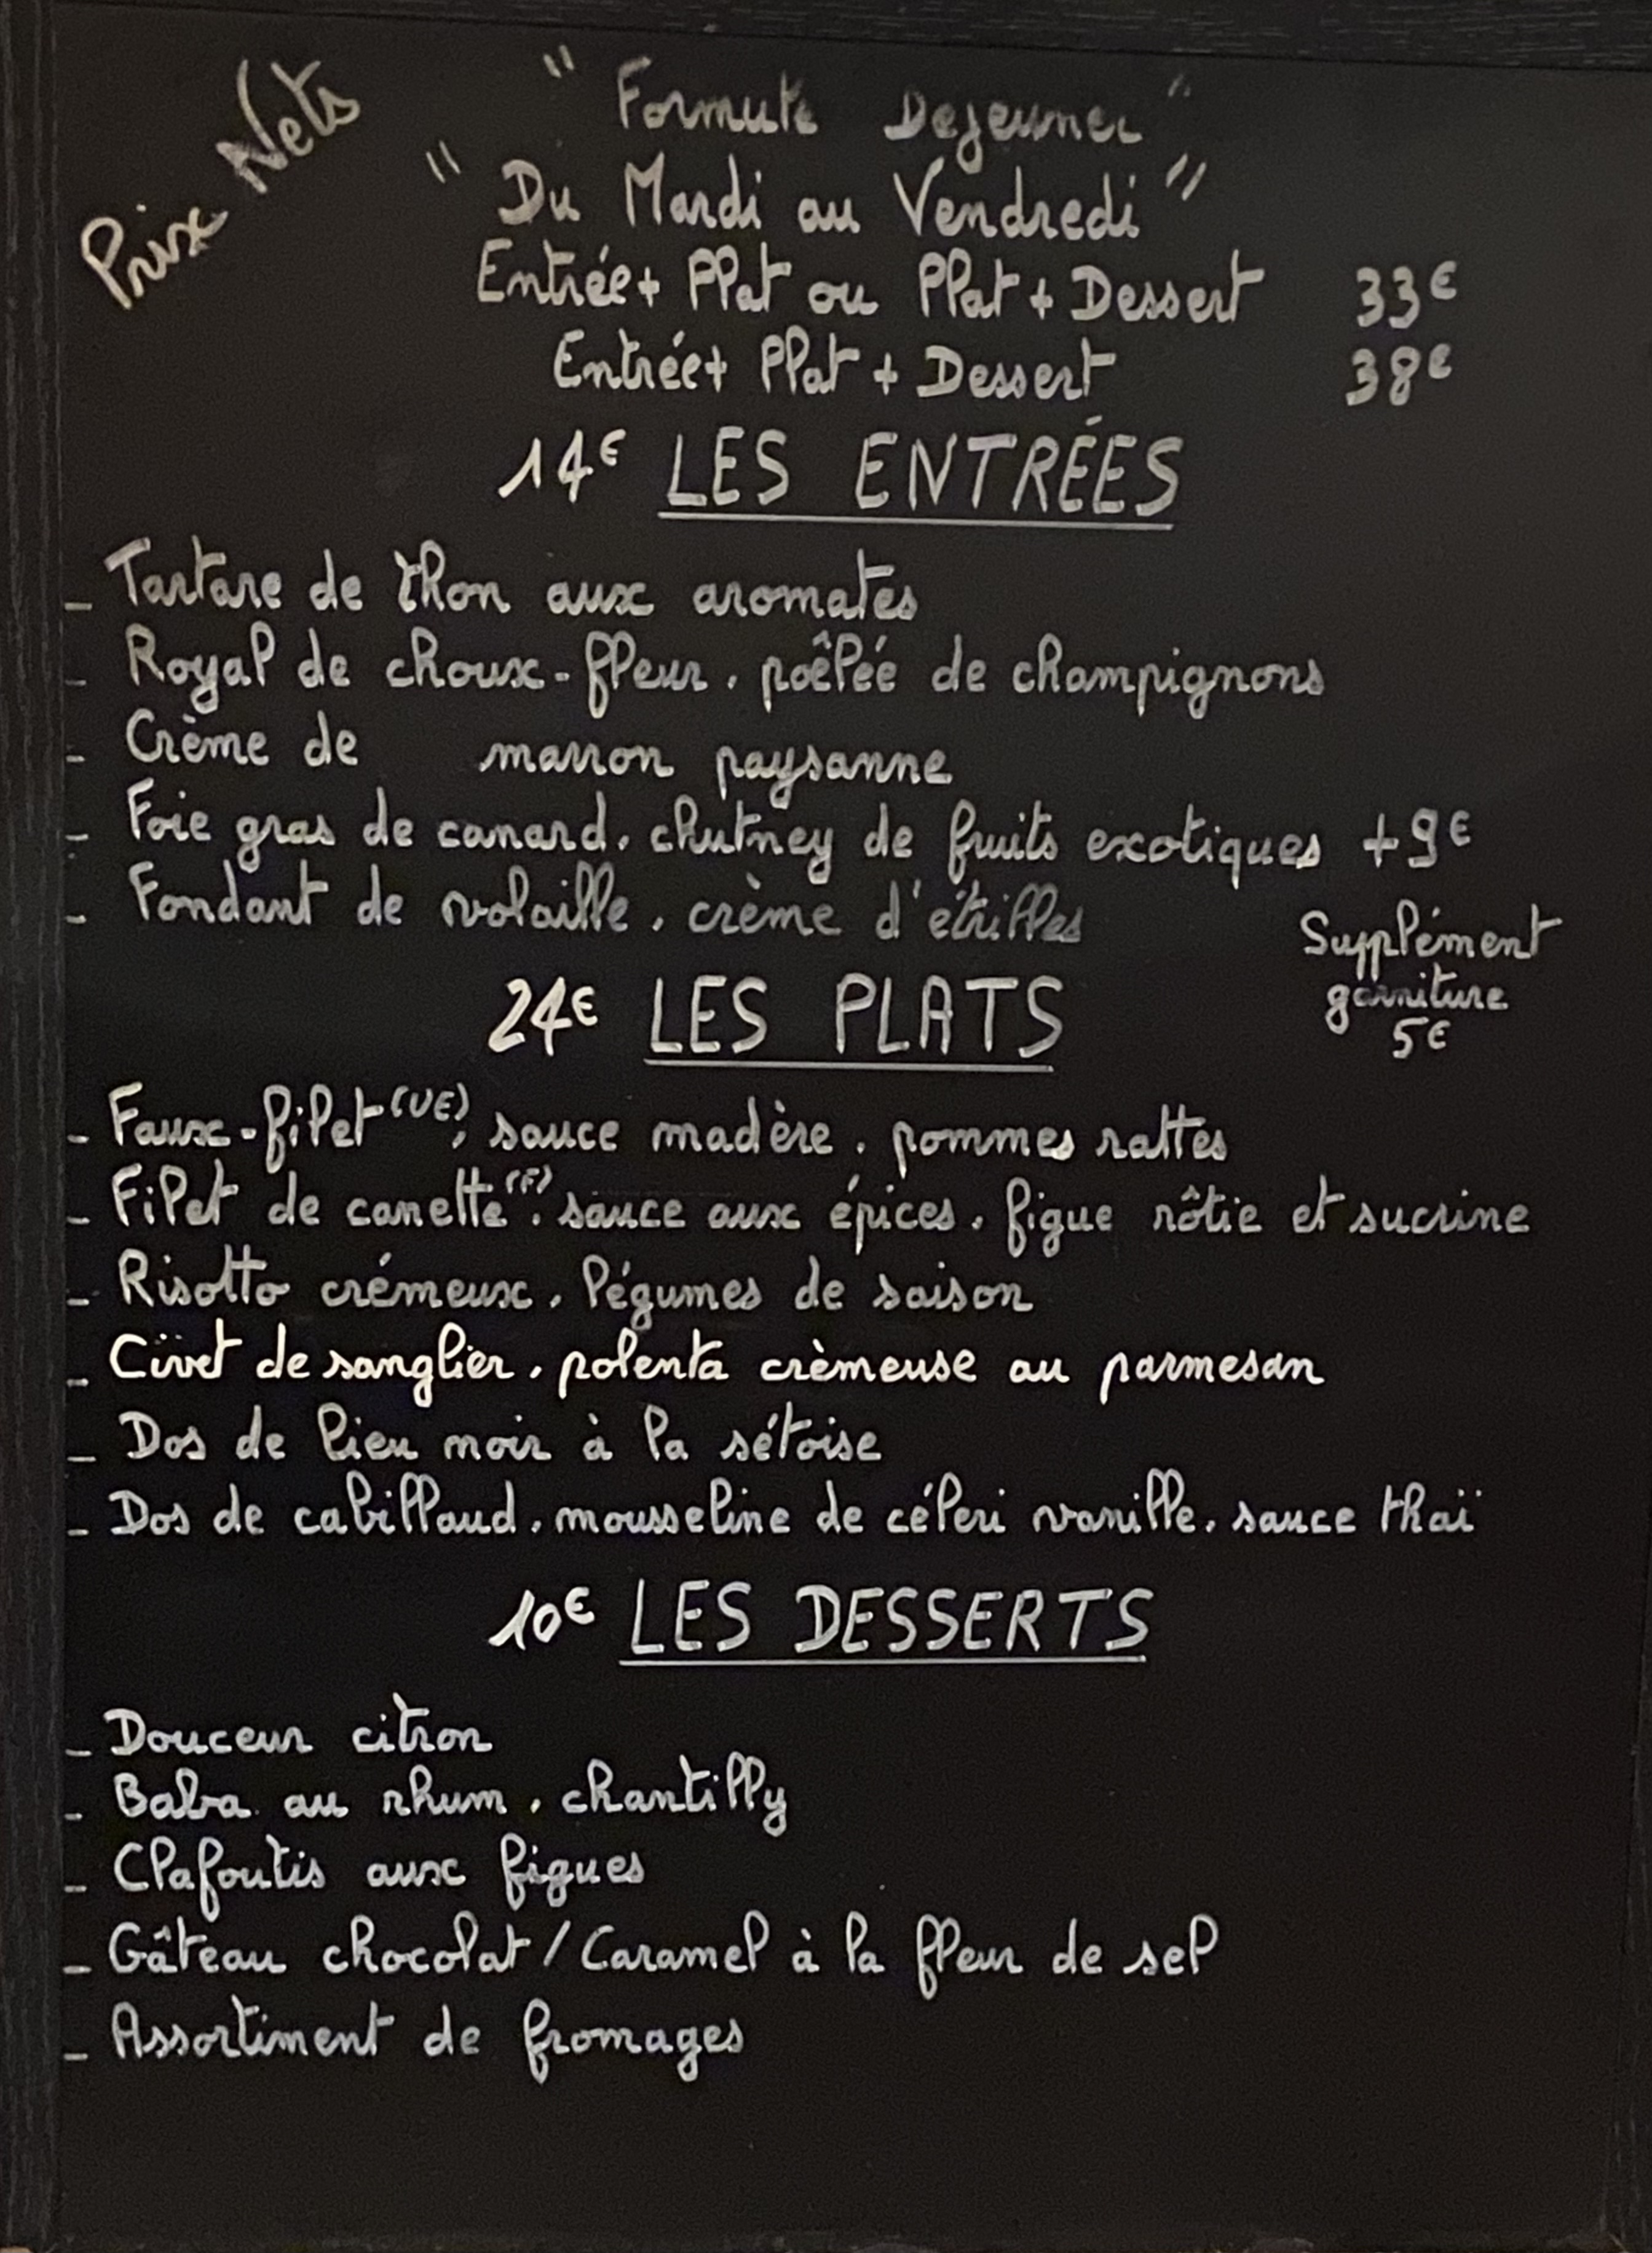 Prix Nets
" Formule Dejeuner "
" Du Mardi au Vendredi "
Entrée + Plat ou Plat + Dessert 33€
Entrée + Plat + Dessert 38€
14€ LES ENTRÉES
- Tartare de thon aux aromates
- Royal de choux-fleur, poêlée de champignons
- Crème de marron paysanne
- Foie gras de canard, chutney de fruits exotiques +9€
- Fondant de volaille, crème d'étrilles
Supplément
garniture
5€
24€ LES PLATS
- Faux-filet (UE), sauce madère, pommes rattes
- Filet de canette (F), sauce aux épices, figue rôtie et sucrine
- Risotto crémeux, légumes de saison
- Civet de sanglier, polenta crèmeuse au parmesan
- Dos de lieu noir à la sétoise
- Dos de cabillaud, mousseline de céleri vanille, sauce thaï
10€ LES DESSERTS
- Douceur citron
- Baba au rhum, chantilly
- Clafoutis aux figues
- Gâteau chocolat / Caramel à la fleur de sel
- Assortiment de fromages